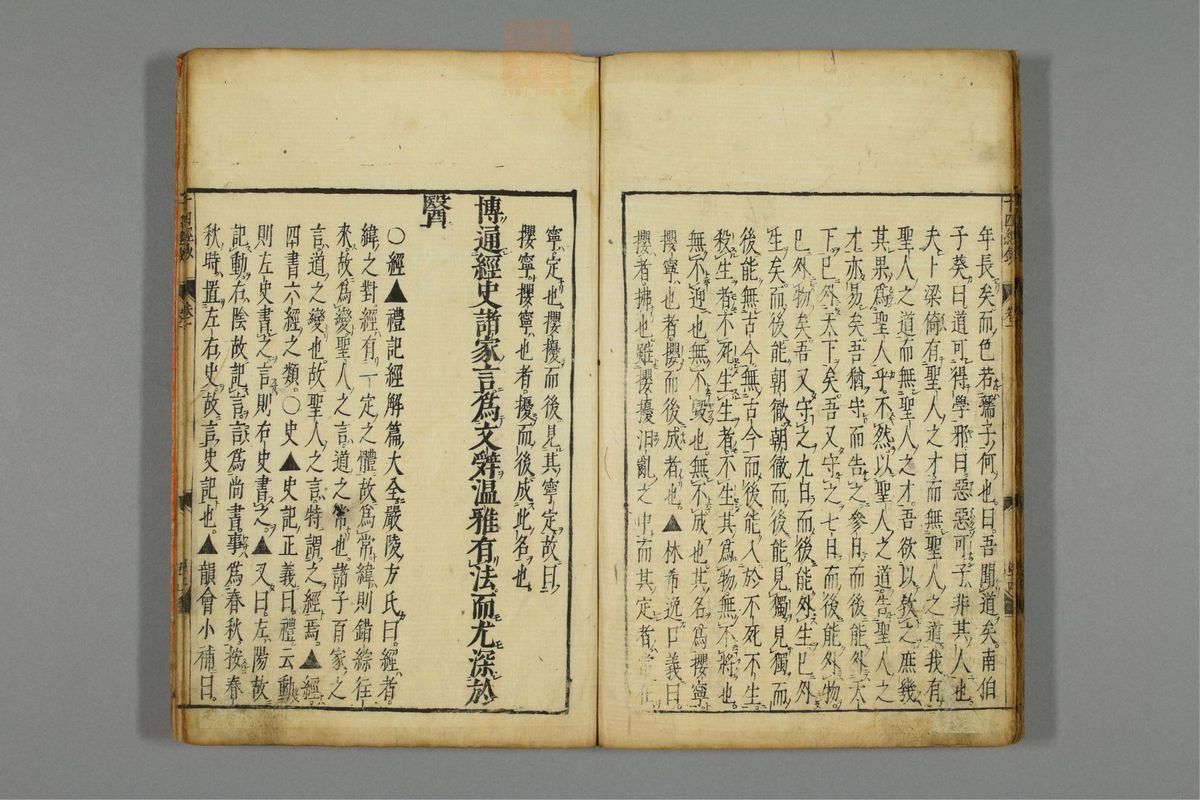 年長矣而色若孺子何也曰吾聞道矣南伯
子葵曰道可得學邪曰惡惡可子非其人也
夫卜梁倚有聖人之才而無聖人之道我有
聖人之道而無聖人之才吾欲以敎之庶幾
其果爲聖人乎不然以聖人之道告聖人之
才亦易矣吾猶守而告之參日而後能外天
下已外天下矣吾又守之七日而後能外物
已外物矣吾又守之九日而後能外生已外
生矣而後能朝徹朝徹而後能見獨見獨而
後能無古今無古今而後能入於不死不生
殺生者不死生生者不生其爲物無不將也
無不迎也無不毀也無不成也其名爲攖寧
攖寧也者攖而後成者也▲林希逸口義曰
攖者拂也雖攖擾汨亂之中而其定者常在
寧定也攖擾而後見其寧定故曰
攖寧攖寧也者擾而後成此名也
博通經史諸家言爲文辭温雅有法而尤深於
醫
〇經▲禮記經解篇大全嚴陵方氏曰經者
緯之對經有一定之體故爲常緯則錯綜往
來故爲變聖人之言道之常也諸子百家之
言道之變也故聖人之言特謂之經焉▲經
四書六經之類〇史▲史記正義曰禮云動
則左史書之言則右史書之▲又曰左陽故
記動右陰故記言言爲尚書事爲春秋按春
秋時置左右史故言史記也▲韻會小補曰